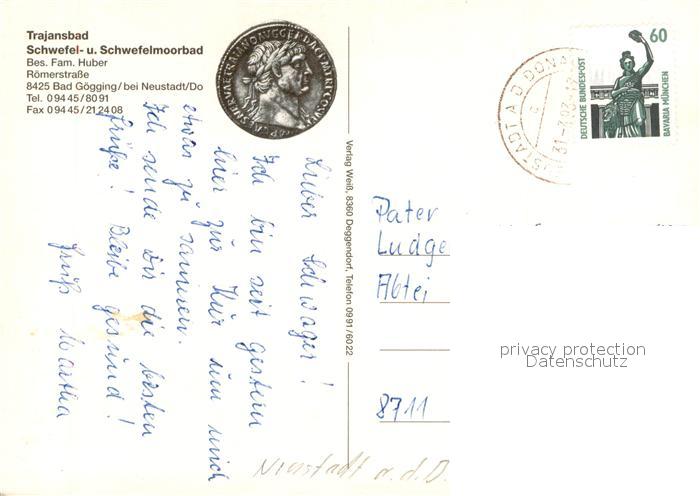 Trajansbad
Schwefel- u. Schwefelmoorbad
Bes. Fam. Huber
Römerstraße
8425 Bad Gögging / bei Neustadt/Do
Tel. 09445/8091
Fax 09445/212408
Lieber Schwager!
Ich bin seit gestern
hier zur Kur um mich
etwas zu sanieren.
Ich sende Dir die besten
Grüße! Bleibe gesund!
Gruß Martha
Verlag Weiß, 8360 Deggendorf, Telefon 0991/6022
60
DEUTSCHE BUNDESPOST
BAVARIA MÜNCHEN
Pater
Ludge
Abtei
8711
privacy protection
Datenschutz
Neustadt a.d.D.